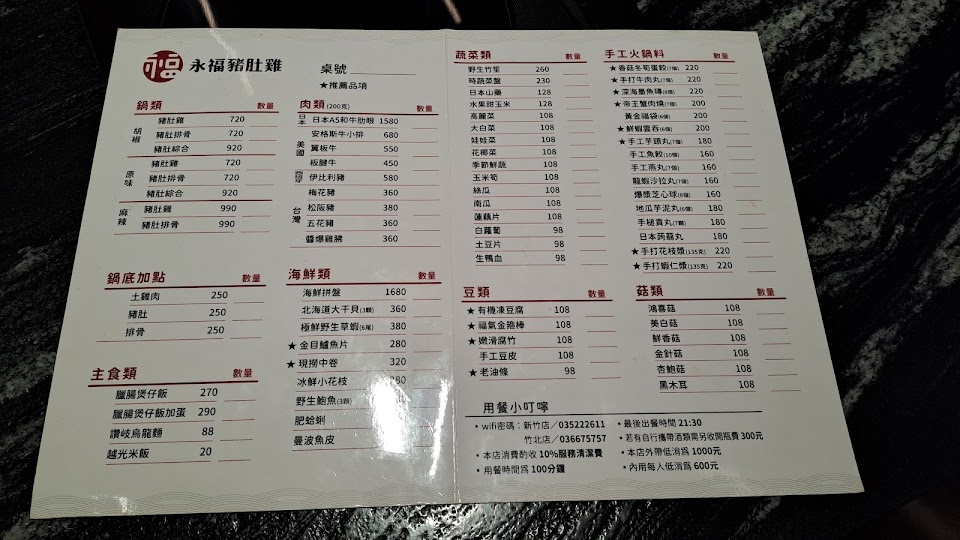 福 永福豬肚雞
桌號
★推薦品項
鍋類 數量
胡椒
豬肚雞 720
豬肚排骨 720
豬肚綜合 920
原味
豬肚雞 720
豬肚排骨 720
豬肚綜合 920
麻辣
豬肚雞 990
豬肚排骨 990
鍋底加點 數量
土雞肉 250
豬肚 250
排骨 250
主食類 數量
臘腸煲仔飯 270
臘腸煲仔飯加蛋 290
讚岐烏龍麵 88
越光米飯 20
肉類 (200克) 數量
日本 日本A5和牛肋眼 1580
美國
安格斯牛小排 680
翼板牛 550
板腱牛 450
伊比利豬 580
台灣
梅花豬 360
松阪豬 380
五花豬 360
醬爆雞胇 360
海鮮類 數量
海鮮拼盤 1680
北海道大干貝(3顆) 360
極鮮野生草蝦(6尾) 380
★金目鱸魚片 280
★現撈中卷 320
冰鮮小花枝
野生鮑魚(3顆)
肥蛤蜊
曼波魚皮
蔬菜類 數量
野生竹笙 260
時蔬菜盤 230
日本山藥 128
水果甜玉米 128
高麗菜 108
大白菜 108
娃娃菜 108
花椰菜 108
季節鮮蔬 108
玉米筍 108
絲瓜 108
南瓜 108
蓮藕片 108
白蘿蔔 98
土豆片 98
生鴨血 98
豆類 數量
★有機凍豆腐 108
★福氣金箍棒 108
★嫩滑腐竹 108
手工豆皮 108
★老油條 98
手工火鍋料 數量
★香菇冬筍蛋餃(7個) 220
★手打牛肉丸(7個) 220
★深海墨魚磚(8個) 220
★帝王蟹肉燒(7個) 200
黃金福袋(6個) 200
★鮮蝦雲吞(6個) 200
★手工芋頭丸(7個) 180
手工魚餃(10個) 160
手工燕丸(7個) 160
龍蝦沙拉丸(7個) 160
爆漿芝心球(8個) 160
地瓜芋泥丸(6個) 180
手槌貢丸(7顆) 180
日本蒟蒻丸 180
★手打花枝漿(135克) 220
★手打蝦仁漿(135克) 220
菇類 數量
鴻喜菇 108
美白菇 108
鮮香菇 108
金針菇 108
杏鮑菇 108
黑木耳 108
用餐小叮嚀
•wifi密碼：新竹店／035222611
竹北店／036675757
•本店消費酌收 10%服務清潔費
•用餐時間為 100分鐘
•最後出餐時間 21:30
•若有自行攜帶酒類需另收開瓶費 300元
•本店外帶低消為 1000元
•內用每人低消為 600元